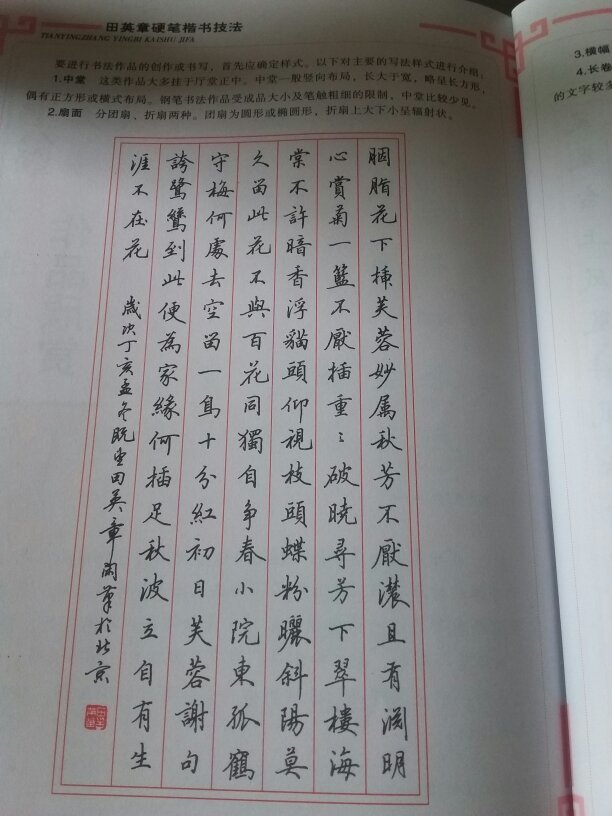 田英章硬笔楷书技法
TIANYINGZHANG YINGBI KAISHU JIFA
要进行书法作品的创作或书写，首先应确定样式。以下对主要的写法样式进行介绍：
1.中堂　这类作品大多挂于厅堂正中。中堂一般竖向布局，长大于宽，略呈长方形，
偶有正方形或横式布局。钢笔书法作品受成品大小及笔触粗细的限制，中堂比较少见。
2.扇面　分团扇、折扇两种。团扇为圆形或椭圆形，折扇上大下小呈辐射状。
胭脂花下插芙蓉妙属秋芳不厭濃且有淵明
心賞菊一籃不厭插重〻破曉尋芳下翠樓海
棠不許暗香浮貓頭仰視枝頭蝶粉曬斜陽莫
久留此花不與百花同獨自争春小院東孤鶴
守梅何處去空留一島十分紅初日芙蓉謝句
誇鷺鷥到此便為家緣何插足秋波立自有生
涯不在花
歲次丁亥孟冬既望田英章閑筆於北京
3.横幅
4.长卷
的文字较多